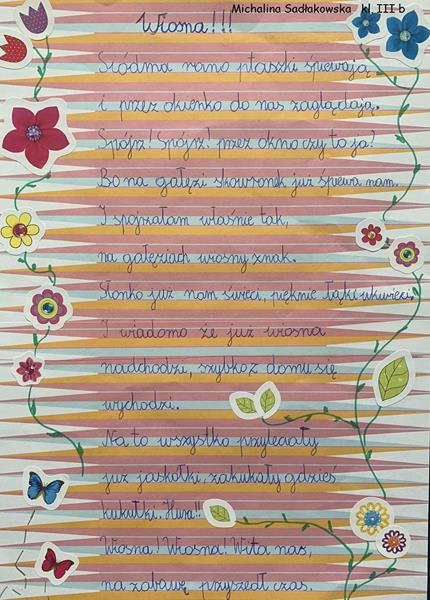 Michalina Sadłakowska kl. III b
Wiosna!!!
Siódma rano ptaszki śpiewają
i przez okienko do nas zaglądają.
Spójrz! Spójrz! przez okno czy to ja?
Bo na gałęzi skowronek już śpiewa nam.
I spojrzałam właśnie tak,
na gałęziach wiosny znak.
Słonko już nam świeci, pięknie łąki ukwieci.
I wiadomo że już wiosna
nadchodzi, szybko z domu się
wychodzi.
Na to wszystko przyleciały
już jaskółki, zakukały gdzieś
kukułki. Hura!!
Wiosna! Wiosna! Wita nas,
na zabawę przyszedł czas.